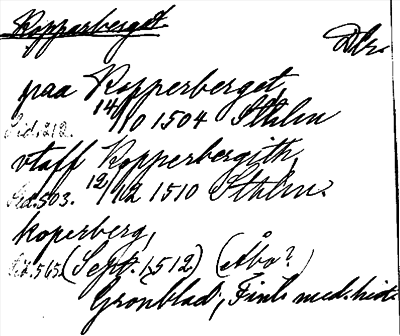 Kopparberget.
Dlr.
paa Kopperberget,
Sid. 212. 14/10 1504 Sthlm
vtaff Kopperbergith,
Sid. 503. 12/12 1510 Sthlm.
koperberg,
Sid. 565. (Sept. 1512) (Åbo?)
Grönblad, Finl. med. hist.